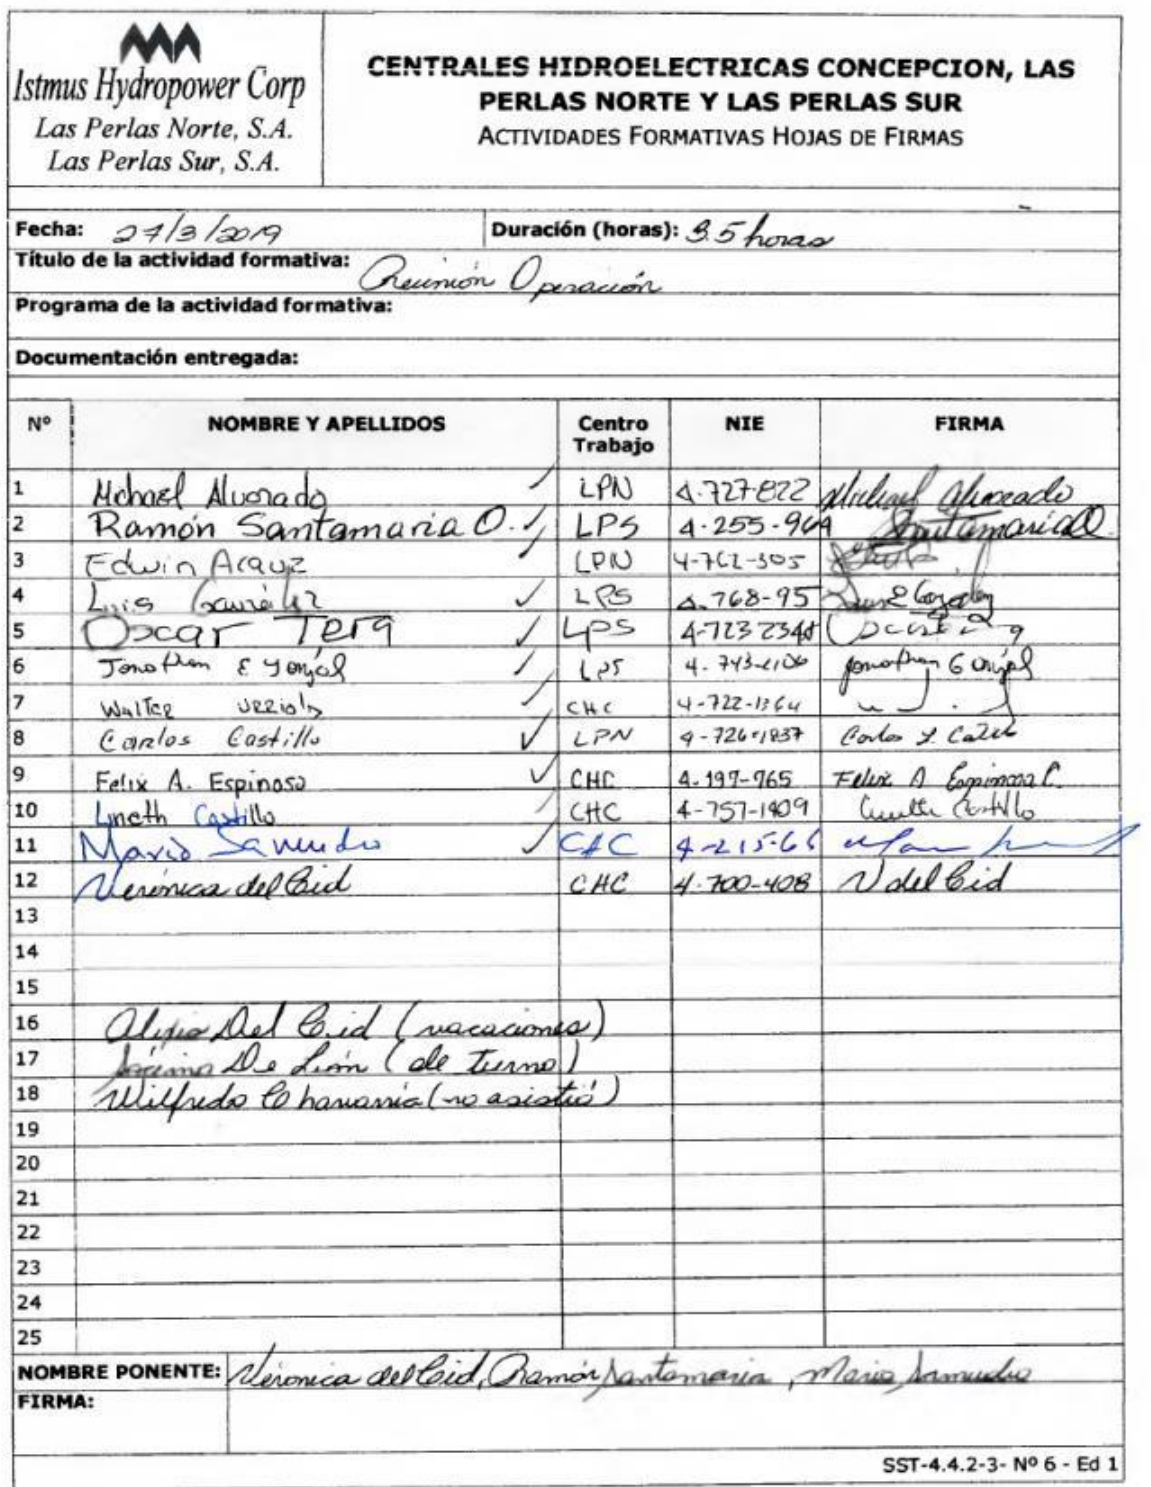 Istmus Hydropower Corp
Las Perlas Norte, S.A.
Las Perlas Sur, S.A.
CENTRALES HIDROELECTRICAS CONCEPCION, LAS
PERLAS NORTE Y LAS PERLAS SUR
ACTIVIDADES FORMATIVAS HOJAS DE FIRMAS
Fecha: 27/3/2019 Duración (horas): 3.5 horas
Título de la actividad formativa: Reunión Operación
Programa de la actividad formativa:
Documentación entregada:
Nº NOMBRE Y APELLIDOS Centro Trabajo NIE FIRMA
1 Michael Alvarado LPN 4-727-822 Michael Alvarado
2 Ramón Santamaria O. LPS 4-255-964 Santamaria O.
3 Edwin Arauz LPN 4-762-305
4 Luis González LPS 4-768-95 González
5 Oscar LPS
6 Jonathan E LPS Jonathan
7 Walter CHC 4-722-1364
8 Carlos Castillo LPN 4-726-1837 Carlos
9 Felix A. Espinosa CHC 4-197-765 Felix A Espinosa C.
10 Lineth Castillo CHC 4-757-1409 Castillo
11 Mario Samudio CHC 4-215-66
12 Verónica del Cid CHC 4-700-408 V del Cid
13
14
15
16 Del Cid (vacaciones)
17 De León (de turno)
18 Wilfredo (no asistió)
19
20
21
22
23
24
25
NOMBRE PONENTE: Verónica del Cid, Ramón Santamaria, Mario Samudio
FIRMA:
SST-4.4.2-3- Nº 6 - Ed 1